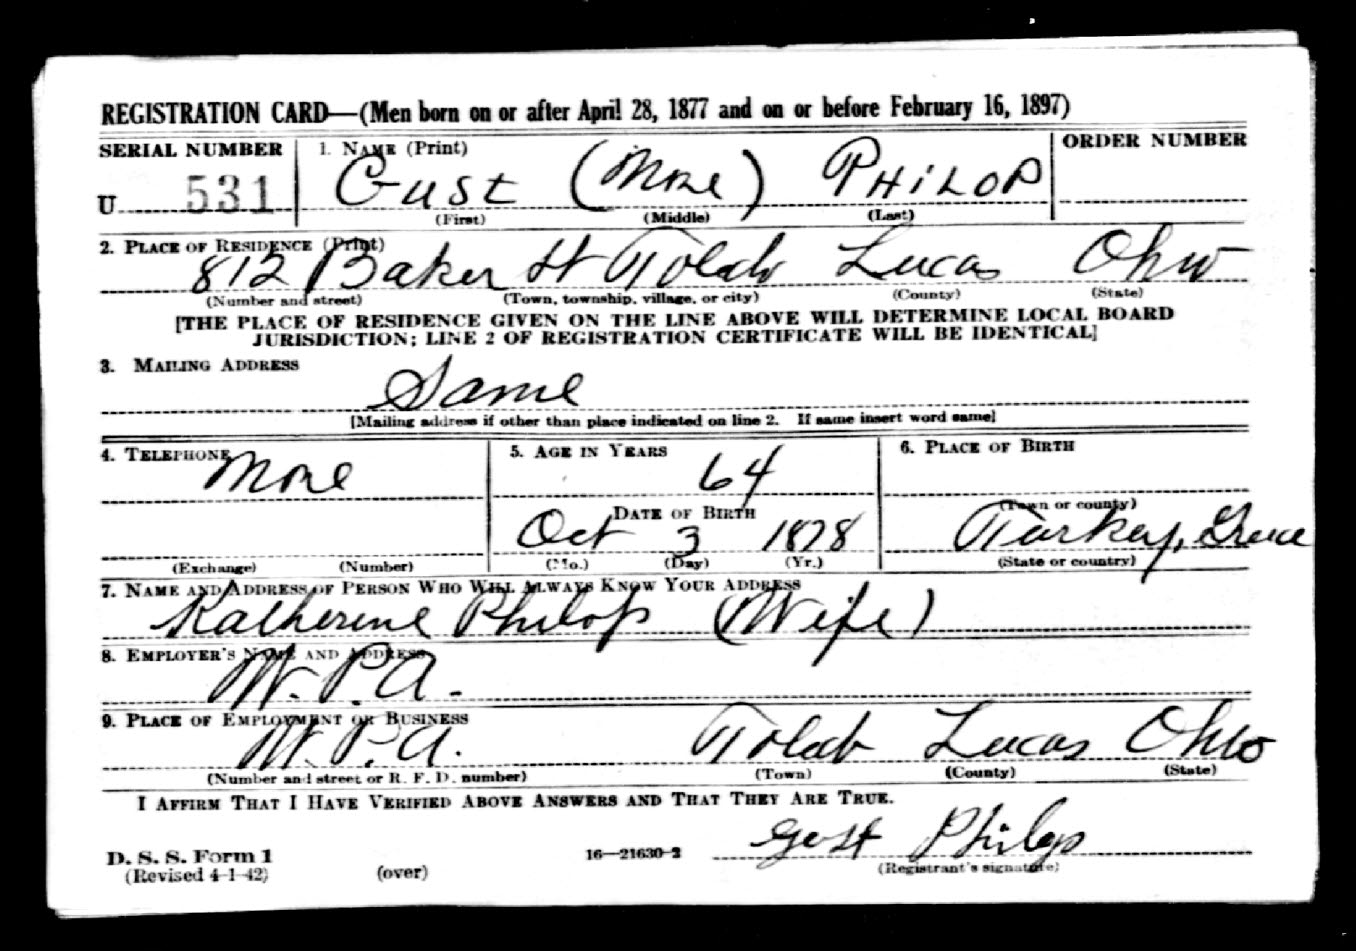 REGISTRATION CARD—(Men born on or after April 28, 1877 and on or before February 16, 1897)
SERIAL NUMBER
1. NAME (Print)
ORDER NUMBER
U 531
Gust (None) PHiLOP
(First) (Middle) (Last)
2. PLACE OF RESIDENCE (Print)
812 Baker St Toledo Lucas Ohio
(Number and street) (Town, township, village, or city) (County) (State)
[THE PLACE OF RESIDENCE GIVEN ON THE LINE ABOVE WILL DETERMINE LOCAL BOARD
JURISDICTION; LINE 2 OF REGISTRATION CERTIFICATE WILL BE IDENTICAL]
3. MAILING ADDRESS
Same
[Mailing address if other than place indicated on line 2. If same insert word same]
4. TELEPHONE
None
(Exchange) (Number)
5. AGE IN YEARS
64
DATE OF BIRTH
Oct 3 1878
(Mo.) (Day) (Yr.)
6. PLACE OF BIRTH
(Town or county)
Turkey, Greece
(State or country)
7. NAME AND ADDRESS OF PERSON WHO WILL ALWAYS KNOW YOUR ADDRESS
Katherine Philop (Wife)
8. EMPLOYER'S NAME AND ADDRESS
W.P.A.
9. PLACE OF EMPLOYMENT OR BUSINESS
W.P.A. Toledo Lucas Ohio
(Number and street or R. F. D. number) (Town) (County) (State)
I AFFIRM THAT I HAVE VERIFIED ABOVE ANSWERS AND THAT THEY ARE TRUE.
Gost Philop
D. S. S. Form 1
(Revised 4-1-42)
(over)
16—21630-2
(Registrant's signature)